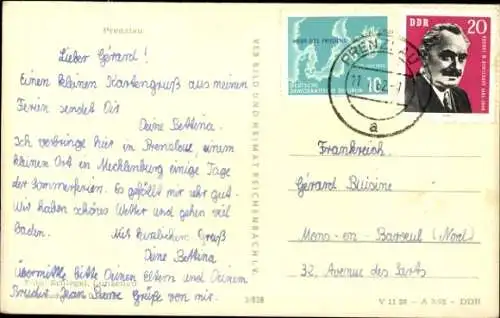 Prenzlau
Lieber Gérard!
Einen kleinen Kartengruß aus meinen
Ferien sendet Dir
Deine Bettina.
Ich verbringe hier in Prenzlau, einem
kleinen Ort in Mecklenburg einige Tage
der Sommerferien. Es gefällt mir sehr gut.
Wir haben schönes Wetter und gehen viel
baden. Mit herzlichem Gruß
Deine Bettina
Übermittle bitte Deinen Eltern und Deinem
Bruder Jean Pierre Grüße von mir.
VEB BILD UND HEIMAT REICHENBACH I. V.
MEER DES FRIEDENS
DEUTSCHE
DEMOKRATISCHE REPUBLIK
10
DDR
20
PRENZLAU
a
Frankreich
Gérard Buisine
Mons-en-Baroeul (Nord)
32, Avenue des Sarts
V 11 28 - A 3/62 - DDR